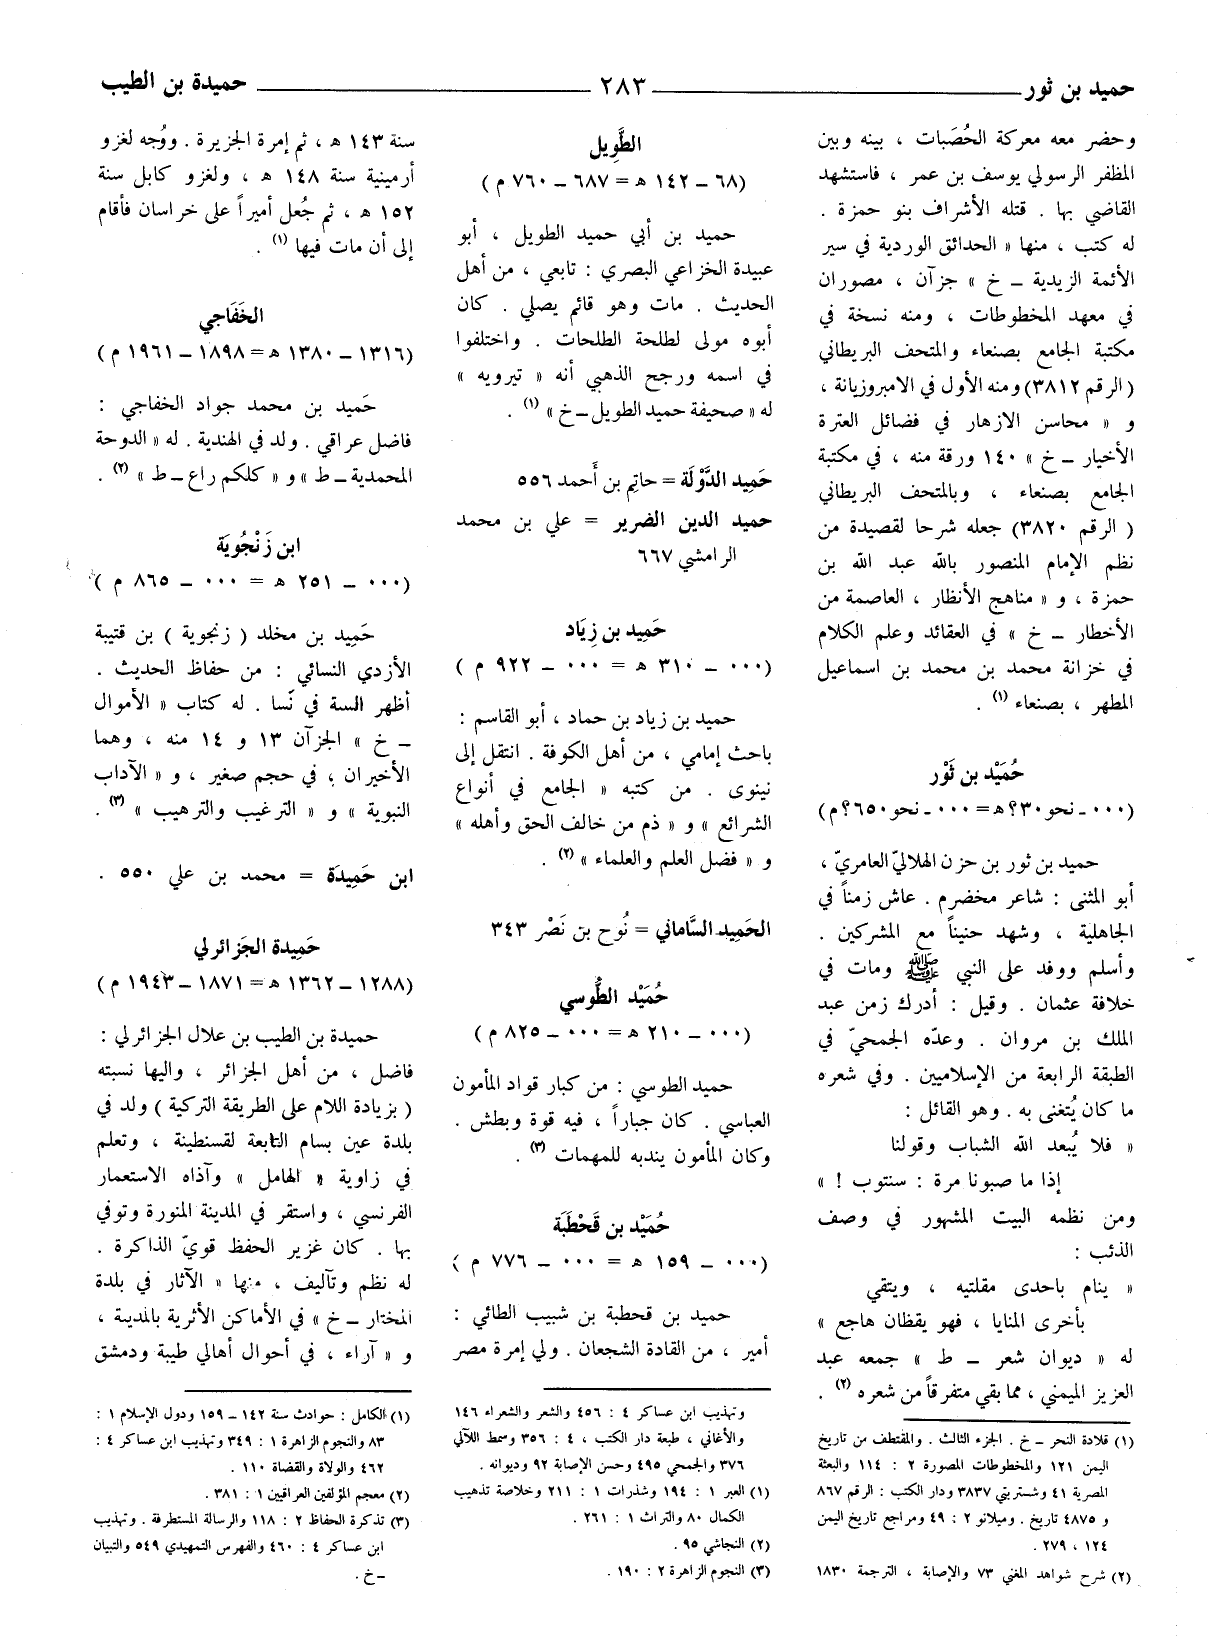 حميد بن ثور ٢٨٣ حميدة بن الطيب
وحضر معه معركة الحُصَبات ، بينه وبين
المظفر الرسولي يوسف بن عمر ، فاستشهد
القاضي بها . قتله الأشراف بنو حمزة .
له كتب ، منها « الحدائق الوردية في سير
الأئمة الزيدية ــ خ » جزآن ، مصوران
في معهد المخطوطات ، ومنه نسخة في
مكتبة الجامع بصنعاء والمتحف البريطاني
( الرقم ٣٨١٢) ومنه الأول في الامبروزيانة ،
و « محاسن الازهار في فضائل العترة
الأخيار ــ خ » ١٤٠ ورقة منه ، في مكتبة
الجامع بصنعاء ، وبالمتحف البريطاني
( الرقم ٣٨٢٠) جعله شرحا لقصيدة من
نظم الإمام المنصور بالله عبد الله بن
حمزة ، و « مناهج الأنظار ، العاصمة من
الأخطار ــ خ » في العقائد وعلم الكلام
في خزانة محمد بن محمد بن اسماعيل
المطهر ، بصنعاء (١) .
حُمَيْد بن ثَوْر
(٠٠٠ ــ نحو ٣٠؟ ه‍ = ٠٠٠ ــ نحو ٦٥٠؟ م)
حميد بن ثور بن حزن الهلاليّ العامريّ ،
أبو المثنى : شاعر مخضرم . عاش زمناً في
الجاهلية ، وشهد حنيناً مع المشركين .
وأسلم ووفد على النبي ﷺ ومات في
خلافة عثمان . وقيل : أدرك زمن عبد
الملك بن مروان . وعدّه الجمحيّ في
الطبقة الرابعة من الإسلاميين . وفي شعره
ما كان يُتغنى به . وهو القائل :
« فلا يُبعد الله الشباب وقولنا
إذا ما صبونا مرة : سنتوب ! »
ومن نظمه البيت المشهور في وصف
الذئب :
« ينام باحدى مقلتيه ، ويتقي
بأخرى المنايا ، فهو يقظان هاجع »
له « ديوان شعر ــ ط » جمعه عبد
العزيز الميمني ، مما بقي متفرقاً من شعره (٢) .
(١) قلادة النحر ــ خ . الجزء الثالث . والمقتطف من تاريخ
اليمن ١٢١ والمخطوطات المصورة ٢ : ١١٤ والبعثة
المصرية ٤١ وشستربتي ٣٨٣٧ ودار الكتب : الرقم ٨٦٧
و ٤٨٧٥ تاريخ . وميلانو ٢ : ٤٩ ومراجع تاريخ اليمن
١٢٤ ، ٢٧٩ .
(٢) شرح شواهد المغني ٧٣ والإصابة ، الترجمة ١٨٣٠
الطَّوِيل
(٦٨ ــ ١٤٢ ه‍ = ٦٨٧ ــ ٧٦٠ م)
حميد بن أبي حميد الطويل ، أبو
عبيدة الخزاعي البصري : تابعي ، من أهل
الحديث . مات وهو قائم يصلي . كان
أبوه مولى لطلحة الطلحات . واختلفوا
في اسمه ورجح الذهبي أنه « تيرويه »
له « صحيفة حميد الطويل ــ خ » (١) .
حَمِيد الدَّوْلَة = حاتِم بن أَحمد ٥٥٦
حميد الدين الضرير = علي بن محمد
الرامشي ٦٦٧
حَمِيد بن زِيَاد
(٠٠٠ ــ ٣١٠ ه‍ = ٠٠٠ ــ ٩٢٢ م)
حميد بن زياد بن حماد ، أبو القاسم :
باحث إمامي ، من أهل الكوفة . انتقل إلى
نينوى . من كتبه « الجامع في أنواع
الشرائع » و « ذم من خالف الحق وأهله »
و « فضل العلم والعلماء » (٢) .
الحَمِيد السَّاماني = نُوح بن نَصْر ٣٤٣
حُمَيْد الطُّوسي
(٠٠٠ ــ ٢١٠ ه‍ = ٠٠٠ ــ ٨٢٥ م)
حميد الطوسي : من كبار قواد المأمون
العباسي . كان جباراً ، فيه قوة وبطش .
وكان المأمون يندبه للمهمات (٣) .
حُمَيْد بن قَحْطَبَة
(٠٠٠ ــ ١٥٩ ه‍ = ٠٠٠ ــ ٧٧٦ م)
حميد بن قحطبة بن شبيب الطائي :
أمير ، من القادة الشجعان . ولي إمرة مصر
وتهذيب ابن عساكر ٤ : ٤٥٦ والشعر والشعراء ١٤٦
والأغاني ، طبعة دار الكتب ، ٤ : ٣٥٦ وسمط اللآلي
٣٧٦ والجمحي ٤٩٥ وحسن الإصابة ٩٢ وديوانه .
(١) العبر ١ : ١٩٤ وشذرات ١ : ٢١١ وخلاصة تذهيب
الكمال ٨٠ والتراث ١ : ٢٦١ .
(٢) النجاشي ٩٥ .
(٣) النجوم الزاهرة ٢ : ١٩٠ .
سنة ١٤٣ ه‍ ، ثم إمرة الجزيرة . ووُجه لغزو
أرمينية سنة ١٤٨ ه‍ ، ولغزو كابل سنة
١٥٢ ه‍ ، ثم جُعل أميراً على خراسان فأقام
إلى أن مات فيها (١) .
الخَفَاجي
(١٣١٦ ــ ١٣٨٠ ه‍ = ١٨٩٨ ــ ١٩٦١ م)
حَميد بن محمد جواد الخفاجي :
فاضل عراقي . ولد في الهندية . له « الدوحة
المحمدية ــ ط » و « كلكم راع ــ ط » (٢) .
ابن زَنْجُويَة
(٠٠٠ ــ ٢٥١ ه‍ = ٠٠٠ ــ ٨٦٥ م)
حَمِيد بن مخلد ( زنجوية ) بن قتيبة
الأزدي النسائي : من حفاظ الحديث .
أظهر السة في نَسا . له كتاب « الأموال
ــ خ » الجزآن ١٣ و ١٤ منه ، وهما
الأخيران ، في حجم صغير ، و « الآداب
النبوية » و « الترغيب والترهيب » (٣) .
ابن حَمِيدَة = محمد بن علي ٥٥٠ .
حَمِيدة الجَزائرلي
(١٢٨٨ ــ ١٣٦٢ ه‍ = ١٨٧١ ــ ١٩٤٣ م)
حميدة بن الطيب بن علال الجزائرلي :
فاضل ، من أهل الجزائر ، واليها نسبته
( بزيادة اللام على الطريقة التركية ) ولد في
بلدة عين بسام التابعة لقسنطينة ، وتعلم
في زاوية « الهامل » وآذاه الاستعمار
الفرنسي ، واستقر في المدينة المنورة وتوفي
بها . كان غزير الحفظ قويّ الذاكرة .
له نظم وتآليف ، منها « الآثار في بلدة
المختار ــ خ » في الأماكن الأثرية بالمدينة ،
و « آراء ، في أحوال أهالي طيبة ودمشق
(١) الكامل : حوادث سنة ١٤٢ ــ ١٥٩ ودول الإسلام ١ :
٨٣ والنجوم الزاهرة ١ : ٣٤٩ وتهذيب ابن عساكر ٤ :
٤٦٢ والولاة والقضاة ١١٠ .
(٢) معجم المؤلفين العراقيين ١ : ٣٨١ .
(٣) تذكرة الحفاظ ٢ : ١١٨ والرسالة المستطرفة . وتهذيب
ابن عساكر ٤ : ٤٦٠ والفهرس التمهيدي ٥٤٩ والتبيان
ــ خ .